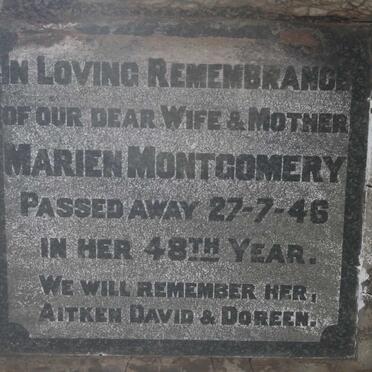 IN LOVING REMEMBRANCE
OF OUR DEAR WIFE & MOTHER
MARIEN MONTGOMERY
PASSED AWAY 27-7-46
IN HER 48TH YEAR.
WE WILL REMEMBER HER,
AITKEN DAVID & DOREEN.